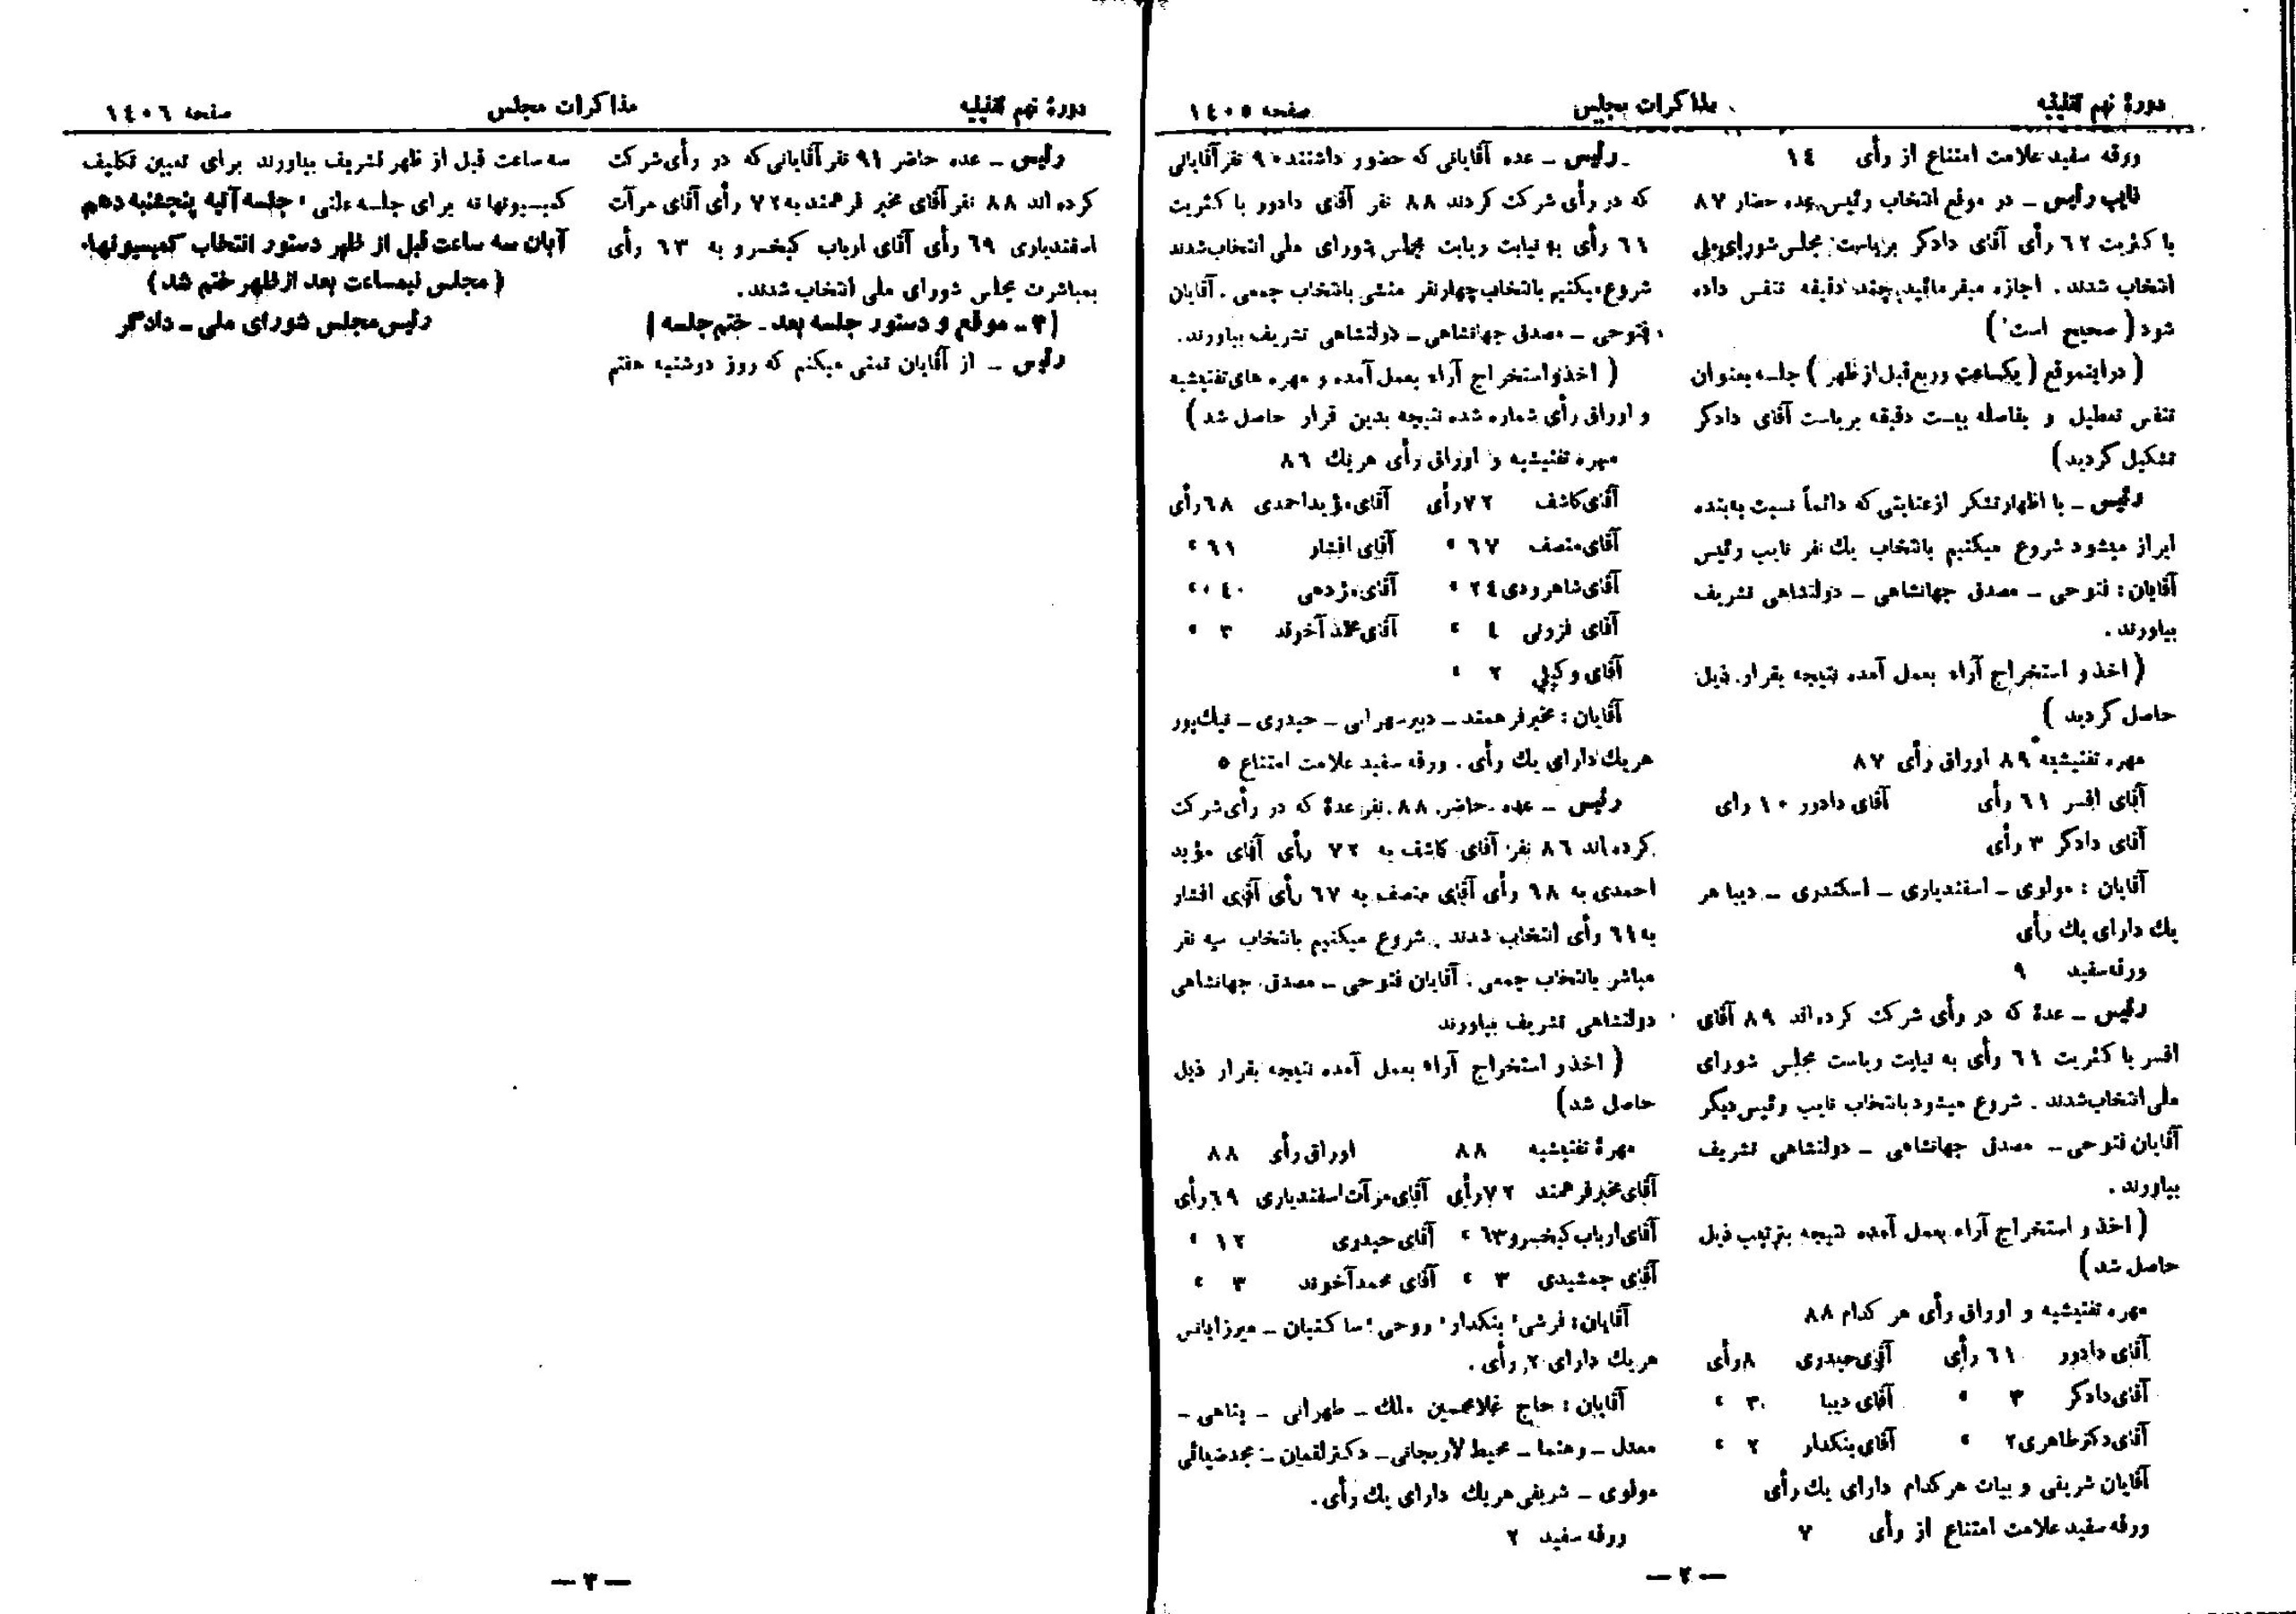 دورهٔ نهم تقنینیه
مذاکرات مجلس
صفحه ۱٤۰٥
ورقه سفید علامت امتناع از رأی ۱٤
نایب رئیس ـ در موقع انتخاب رئیس عده حضار ۸۷
با کثریت ٦۲ رأی آقای دادگر بریاست مجلس شورای ملی
انتخاب شدند . اجازه میفرمائید چند دقیقه تنفس داده
شود ( صحیح است )
( در اینموقع ( یکساعت و ربع قبل از ظهر ) جلسه بعنوان
تنفس تعطیل و بفاصله بیست دقیقه بریاست آقای دادگر
تشکیل گردید )
رئیس ـ با اظهار تشکر از عنایتی که دائماً نسبت به بنده
ابراز میشود شروع میکنیم بانتخاب یك نفر نایب رئیس
آقایان : فتوحی ـ مصدق جهانشاهی ـ دولتشاهی تشریف
بیاورند .
( اخذ و استخراج آراء بعمل آمده نتیجه بقرار ذیل
حاصل گردید )
مهره تفتیشیه ۸۹ اوراق رأی ۸۷
آقای افسر ٦۱ رأی آقای دادور ۱۰ رای
آقای دادگر ۳ رأی
آقایان : مولوی ـ اسفندیاری ـ اسکندری ـ دیبا هر
یك دارای یك رأی
ورقه سفید ۹
رئیس ـ عدهٔ که در رأی شرکت کرده‌اند ۸۹ آقای
افسر با کثریت ٦۱ رأی به نیابت ریاست مجلس شورای
ملی انتخاب شدند . شروع میشود بانتخاب نایب رئیس دیگر
آقایان فتوحی ـ مصدق جهانشاهی ـ دولتشاهی تشریف
بیاورند .
( اخذ و استخراج آراء بعمل آمده نتیجه بترتیب ذیل
حاصل شد )
مهره تفتیشیه و اوراق رأی هر کدام ۸۸
آقای دادور ٦۱ رأی آقای حیدری ۸ رأی
آقای دادگر ۳ » آقای دیبا ۳ »
آقای دکتر طاهری ۲ » آقای بنکدار ۲ »
آقایان شریفی و بیات هر کدام دارای یك رأی
ورقه سفید علامت امتناع از رأی ۷
رئیس ـ عده آقایانی که حضور داشتند ۹۰ نفر آقایانی
که در رأی شرکت کردند ۸۸ نفر آقای دادور با کثریت
٦۱ رأی به نیابت ریاست مجلس شورای ملی انتخاب شدند
شروع میکنیم بانتخاب چهار نفر منشی بانتخاب جمعی . آقایان
فتوحی ـ مصدق جهانشاهی ـ دولتشاهی تشریف بیاورند .
( اخذ و استخراج آراء بعمل آمده و مهره های تفتیشیه
و اوراق رأی شماره شده نتیجه بدین قرار حاصل شد )
مهره تفتیشیه و اوراق رأی هر یك ۸٦
آقای کاشف ۷۲ رأی آقای مؤید احمدی ٦۸ رأی
آقای منصف ٦۷ » آقای افشار ٦۱ »
آقای شاهرودی ۲٤ » آقای مژدهی ٤۰ »
آقای فزونی ٤ » آقای محمد آخوند ۳ »
آقای وکیلی ۲ »
آقایان : مخبر فرهمند ـ دبیر سهرابی ـ حیدری ـ نیك پور
هر یك دارای یك رأی . ورقه سفید علامت امتناع ٥
رئیس ـ عده حاضر ۸۸ نفر عدهٔ که در رأی شرکت
کرده‌اند ۸٦ نفر آقای کاشف به ۷۲ رأی آقای مؤید
احمدی به ٦۸ رأی آقای منصف به ٦۷ رأی آقای افشار
به ٦۱ رأی انتخاب شدند . شروع میکنیم بانتخاب سه نفر
مباشر بانتخاب جمعی . آقایان فتوحی ـ مصدق جهانشاهی
دولتشاهی تشریف بیاورند
( اخذ و استخراج آراء بعمل آمده نتیجه بقرار ذیل
حاصل شد )
مهرهٔ تفتیشیه ۸۸ اوراق رأی ۸۸
آقای مخبر فرهمند ۷۲ رأی آقای مرآت اسفندیاری ٦۹ رأی
آقای ارباب کیخسرو ٦۳ » آقای حیدری ۱۲ »
آقای جمشیدی ۳ » آقای محمد آخوند ۳ »
آقایان : فرشی ، بنکدار ، روحی ، ساکنیان ـ میرزایانس
هر یك دارای ۲ رأی .
آقایان : حاج غلامحسین ملك ـ طهرانی ـ پناهی ـ
معدل ـ رهنما ـ محیط لاریجانی ـ دکتر لقمان ـ مجد ضیائی
مولوی ـ شریفی هر یك دارای یك رأی .
ورقه سفید ۲
— ۲ —
دورهٔ نهم تقنینیه
مذاکرات مجلس
صفحه ۱٤۰٦
رئیس ـ عده حاضر ۹۱ نفر آقایانی که در رأی شرکت
کرده‌اند ۸۸ نفر آقای مخبر فرهمند به ۷۲ رأی آقای مرآت
اسفندیاری ٦۹ رأی آقای ارباب کیخسرو به ٦۳ رأی
بمباشرت مجلس شورای ملی انتخاب شدند .
( ۳ ـ موقع و دستور جلسه بعد ـ ختم جلسه )
رئیس ـ از آقایان تمنی میکنم که روز دوشنبه هفتم
سه ساعت قبل از ظهر تشریف بیاورند برای تعیین تکلیف
کمیسیونها نه برای جلسه علنی ، جلسه آتیه پنجشنبه دهم
آبان سه ساعت قبل از ظهر دستور انتخاب کمیسیونها .
( مجلس نیمساعت بعد از ظهر ختم شد )
رئیس مجلس شورای ملی ـ دادگر
— ۳ —